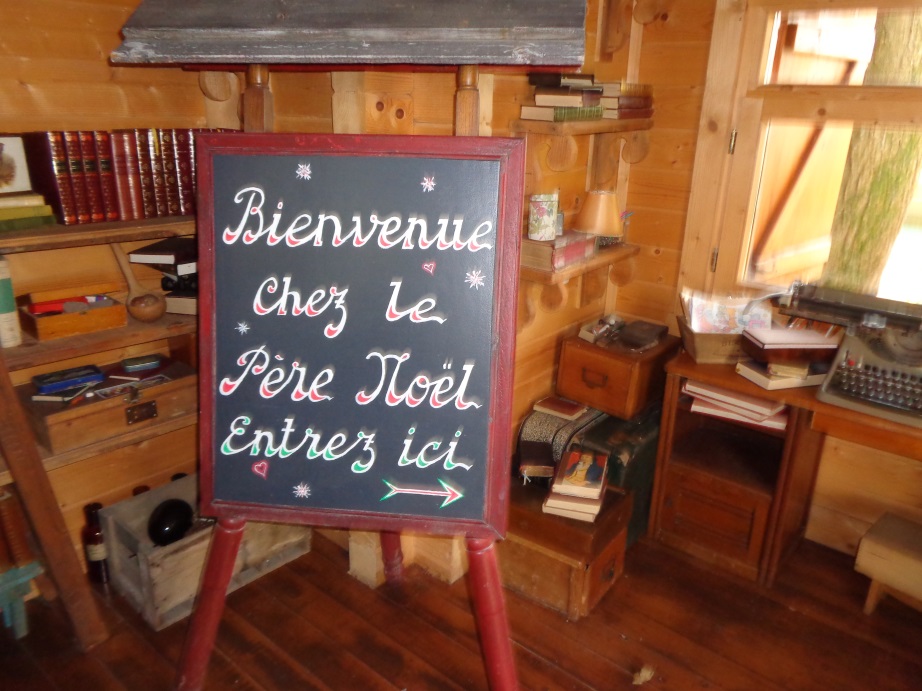 Bienvenue
Chez le
Père Noël
Entrez ici